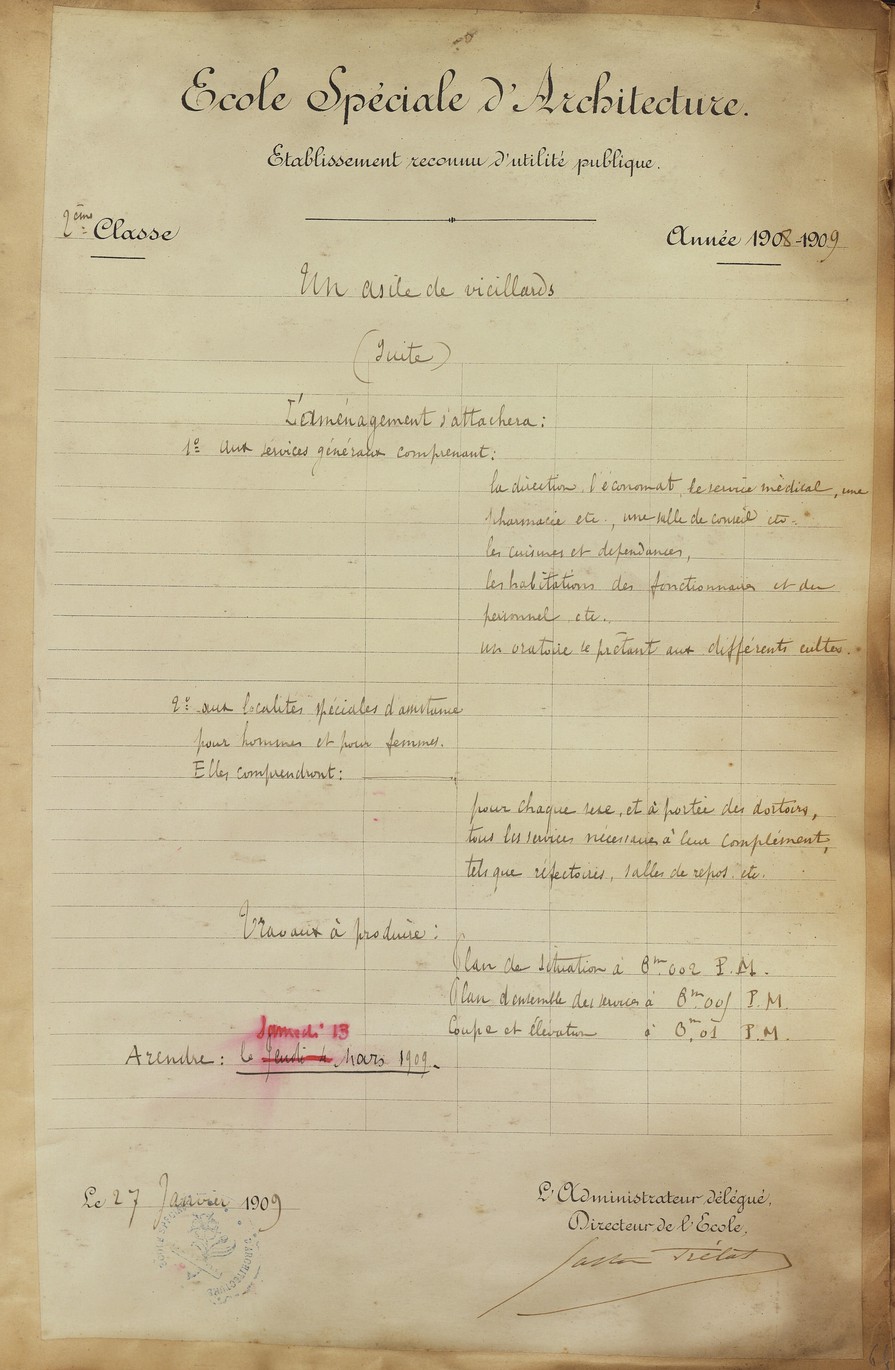 Ecole Spéciale d'Architecture.
Etablissement reconnu d'utilité publique.
2ème Classe
Année 1908-1909
Un asile de vieillards
(Suite)
L'aménagement s'attachera :
1º aux services généraux comprenant :
la direction, l'économat, le service médical, une
pharmacie etc., une salle de conseil etc.
les cuisines et dépendances,
les habitations des fonctionnaires et du
personnel etc.
un oratoire se prêtant aux différents cultes.
2º aux localités spéciales d'assistance
pour hommes et pour femmes.
Elles comprendront :
pour chaque sexe, et à portée des dortoirs,
tous les services nécessaires à leur complément,
tels que réfectoires, salles de repos etc.
Travaux à produire :
Plan de situation à 0m002 P.M.
Plan d'ensemble des services à 0m005 P.M.
Coupe et élévation à 0m,01 P.M.
Samedi 13
A rendre : le jeudi 4 Mars 1909.
Le 27 Janvier 1909
L'Administrateur délégué,
Directeur de l'Ecole,
Gaston Trélat
D'ARCHITECTURE